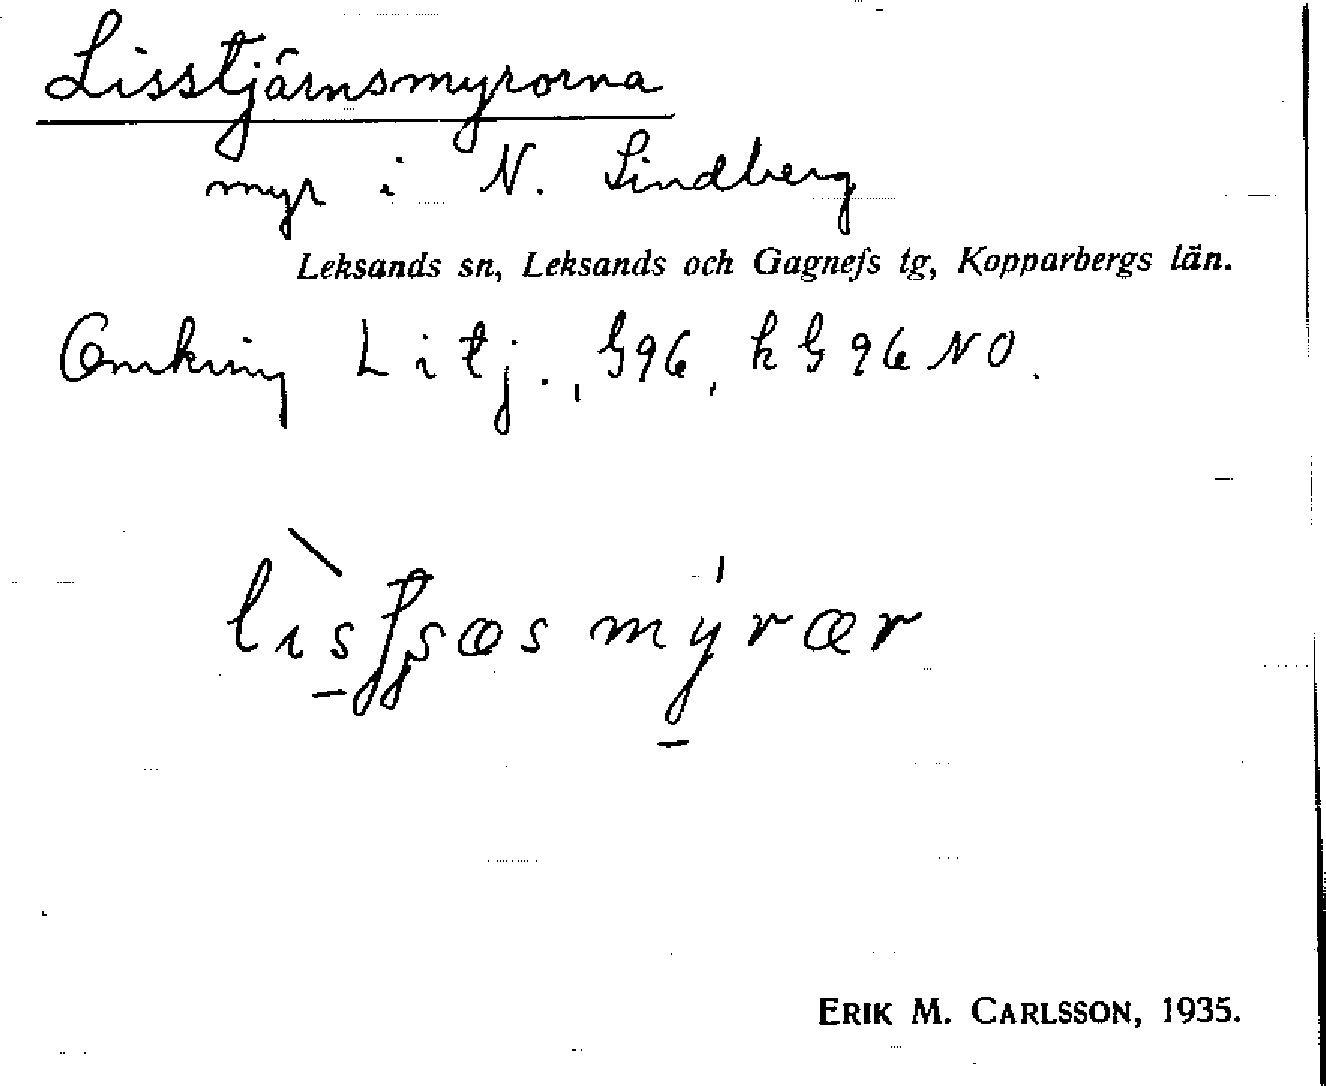 Lisstjärnsmyrorna
myr i N. Lindberg
Leksands sn, Leksands och Gagnefs tg, Kopparbergs län.
Omkring Litj., G96, kG96NO.
ERIK M. CARLSSON, 1935.